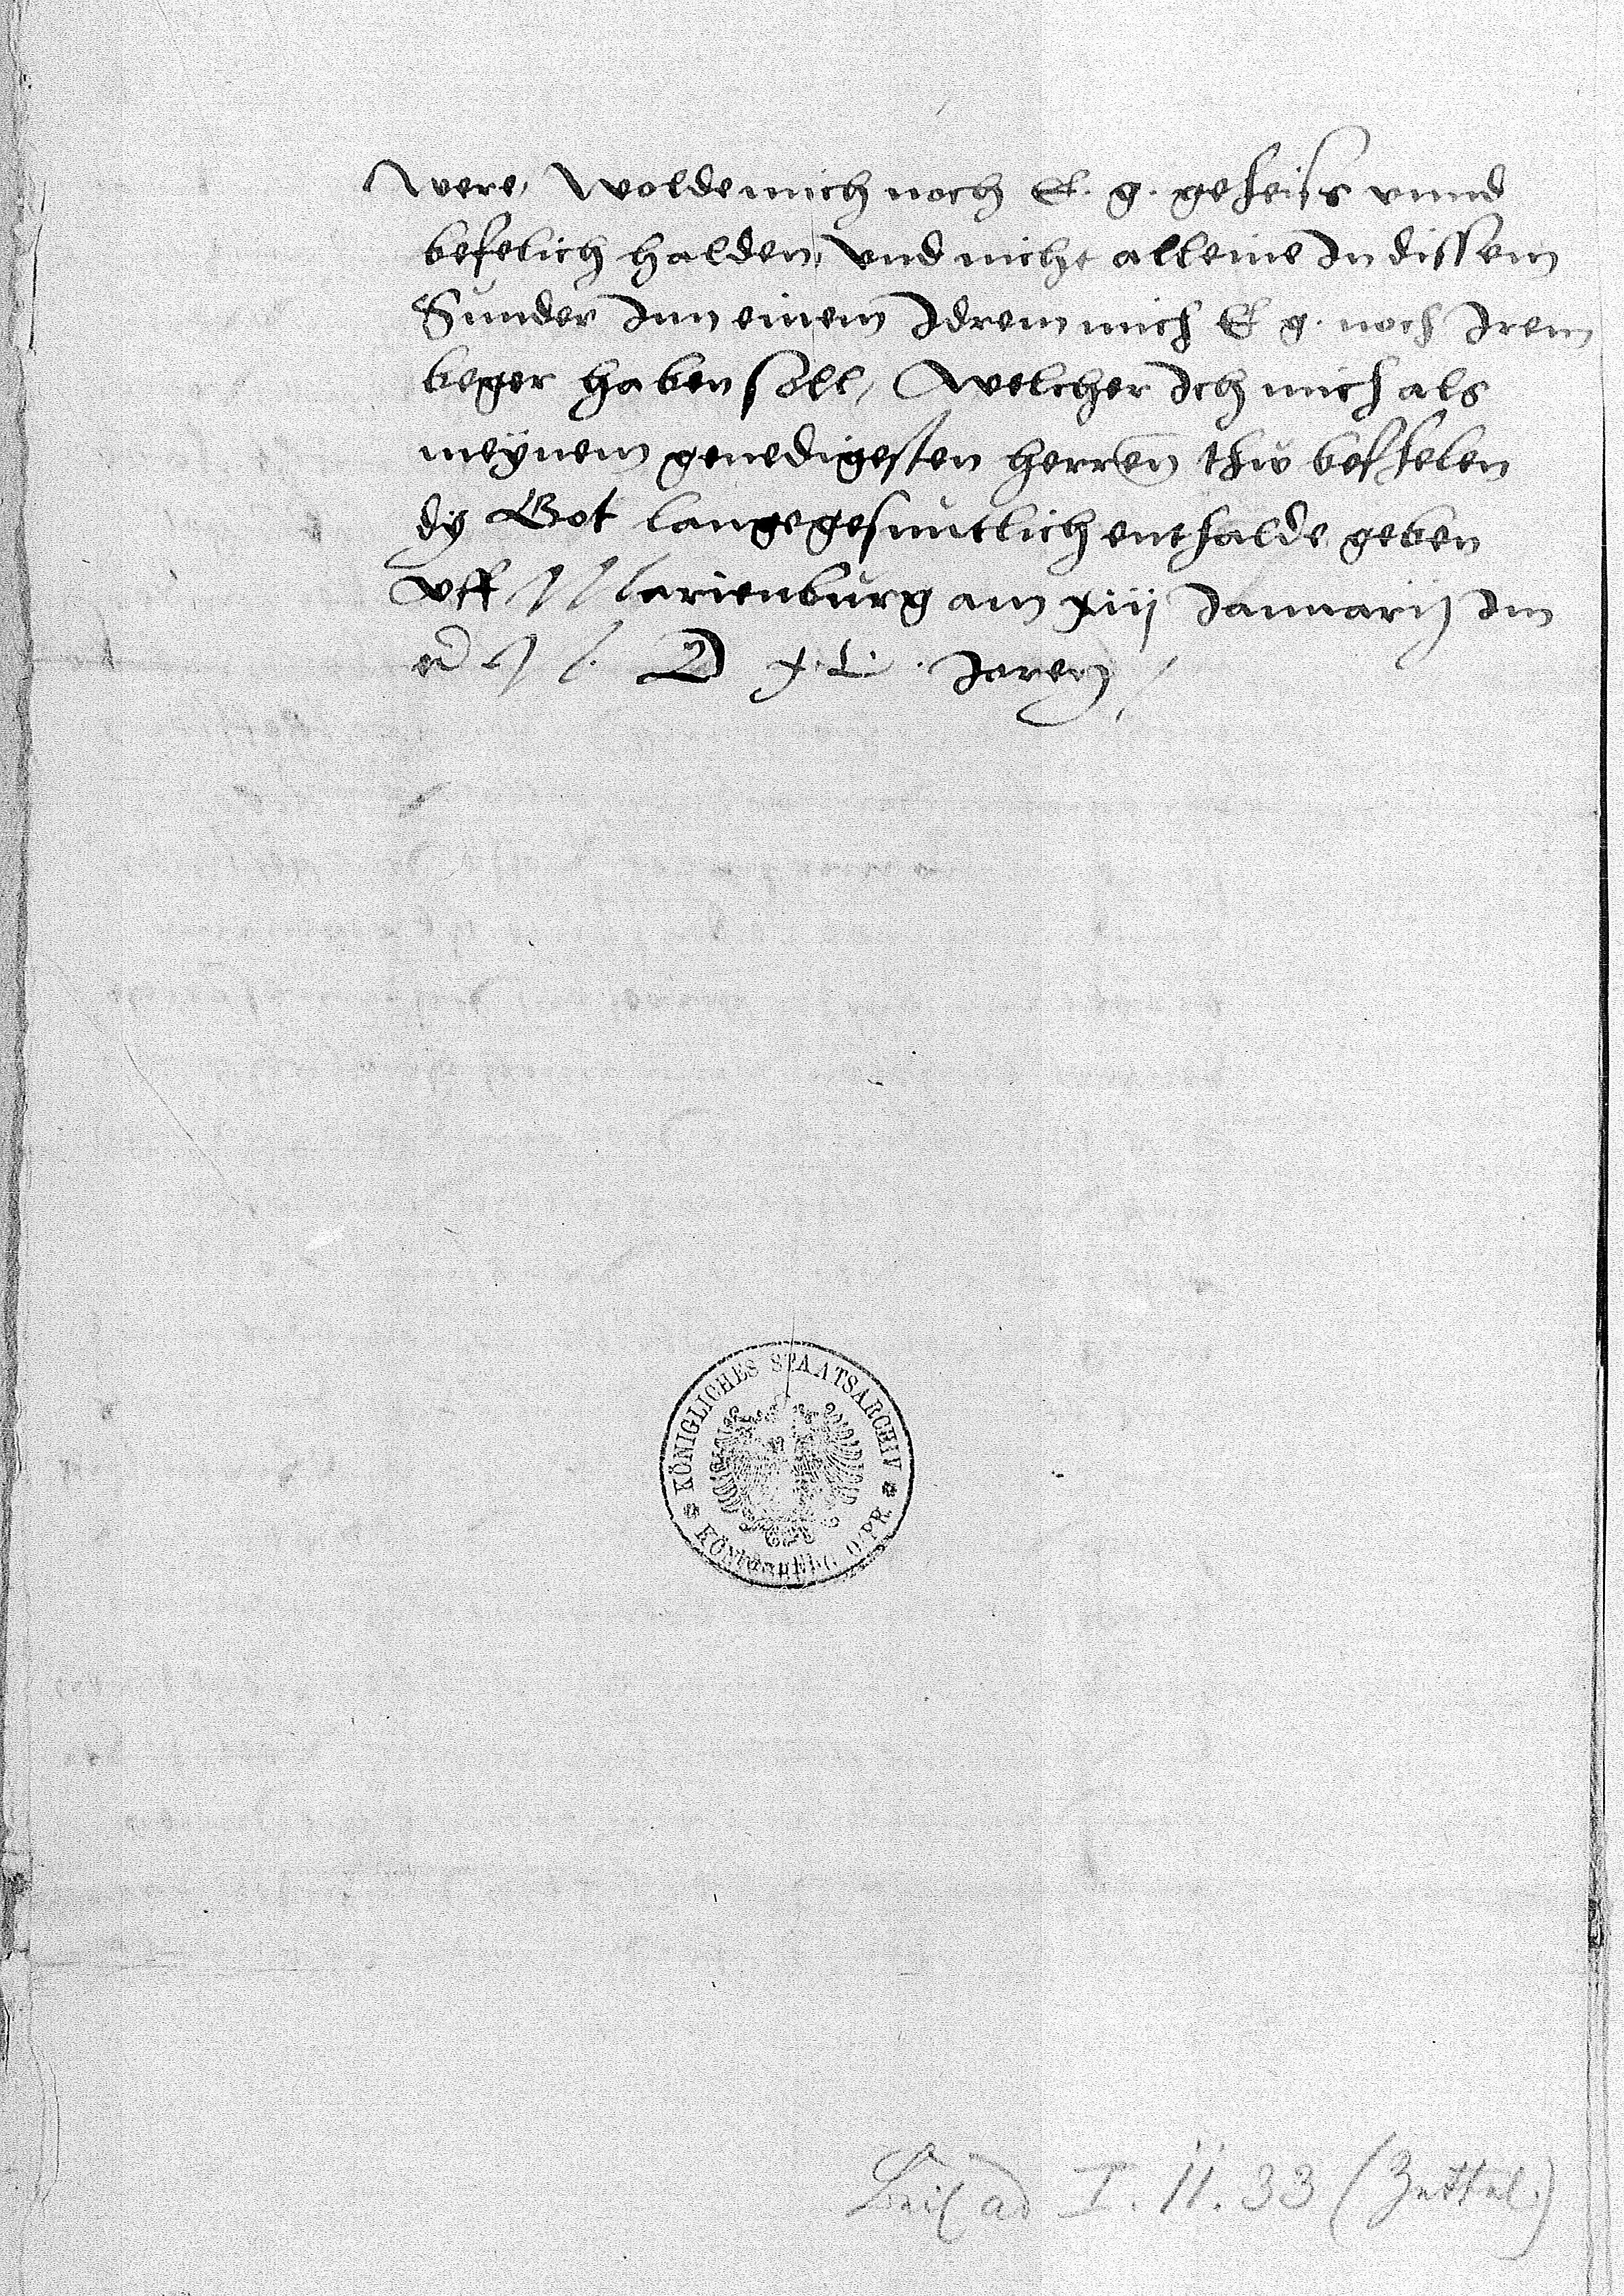 were, wolde mich noch E. g. geheiss vnnd
befelich halden, vnd nicht alleine In dissem
Sunder Inn einem Idrem mich E g. noch Irem
beger haben soll, Welcher Ich mich als
meynem genedigesten herren thw befhelen
dy Got lange gesuntlich enthalde geben
vff Marienburg am xiij Januarij Im
M. D xL. Jaren
KÖNIGLICHES STAATSARCHIV
KÖNIGSBERG O/PR.
Beil ad I. 11. 33 (Zettel.)